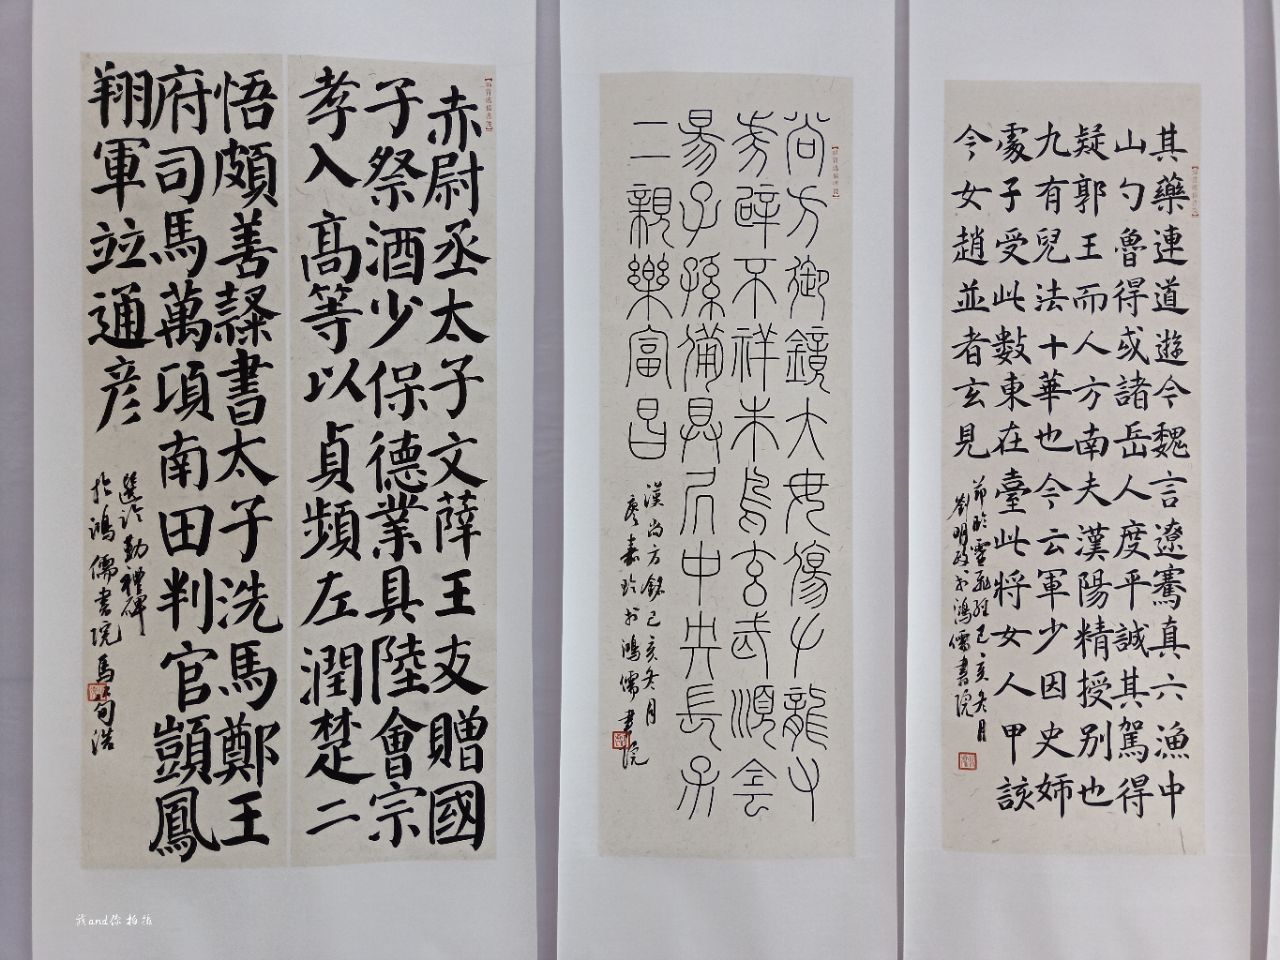 赤尉丞太子文薛王友贈國
子祭酒少保德業具陸會宗
孝入高等以貞頻左潤楚二
悟頗善隸書太子洗馬鄭王
府司馬萬項南田判官顗鳳
翔軍竝通彦
於鴻儒書院馬
尚方御鏡大毋傷左龍右
虎辟不祥朱鳥玄武順陰
昜子孫備具居中央長保
二親樂富昌
漢尚方銘己亥冬月
於鴻儒書院
其藥連道遊今魏言遼騫真六漁中
山勺魯得或諸岳人度平誠其駕得
疑郭王而人方南夫漢陽精授別也
九有兒法十華也今云軍少因史姉
處子受此數東在臺此將女人甲該
今女趙並者玄見
節臨靈飛經己亥冬月
劉明政於鴻儒書院
我and你拍攝